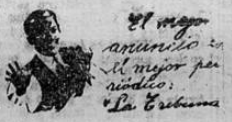 El mejor
anuncio es
El mejor pe
riódico:
"La Tribuna